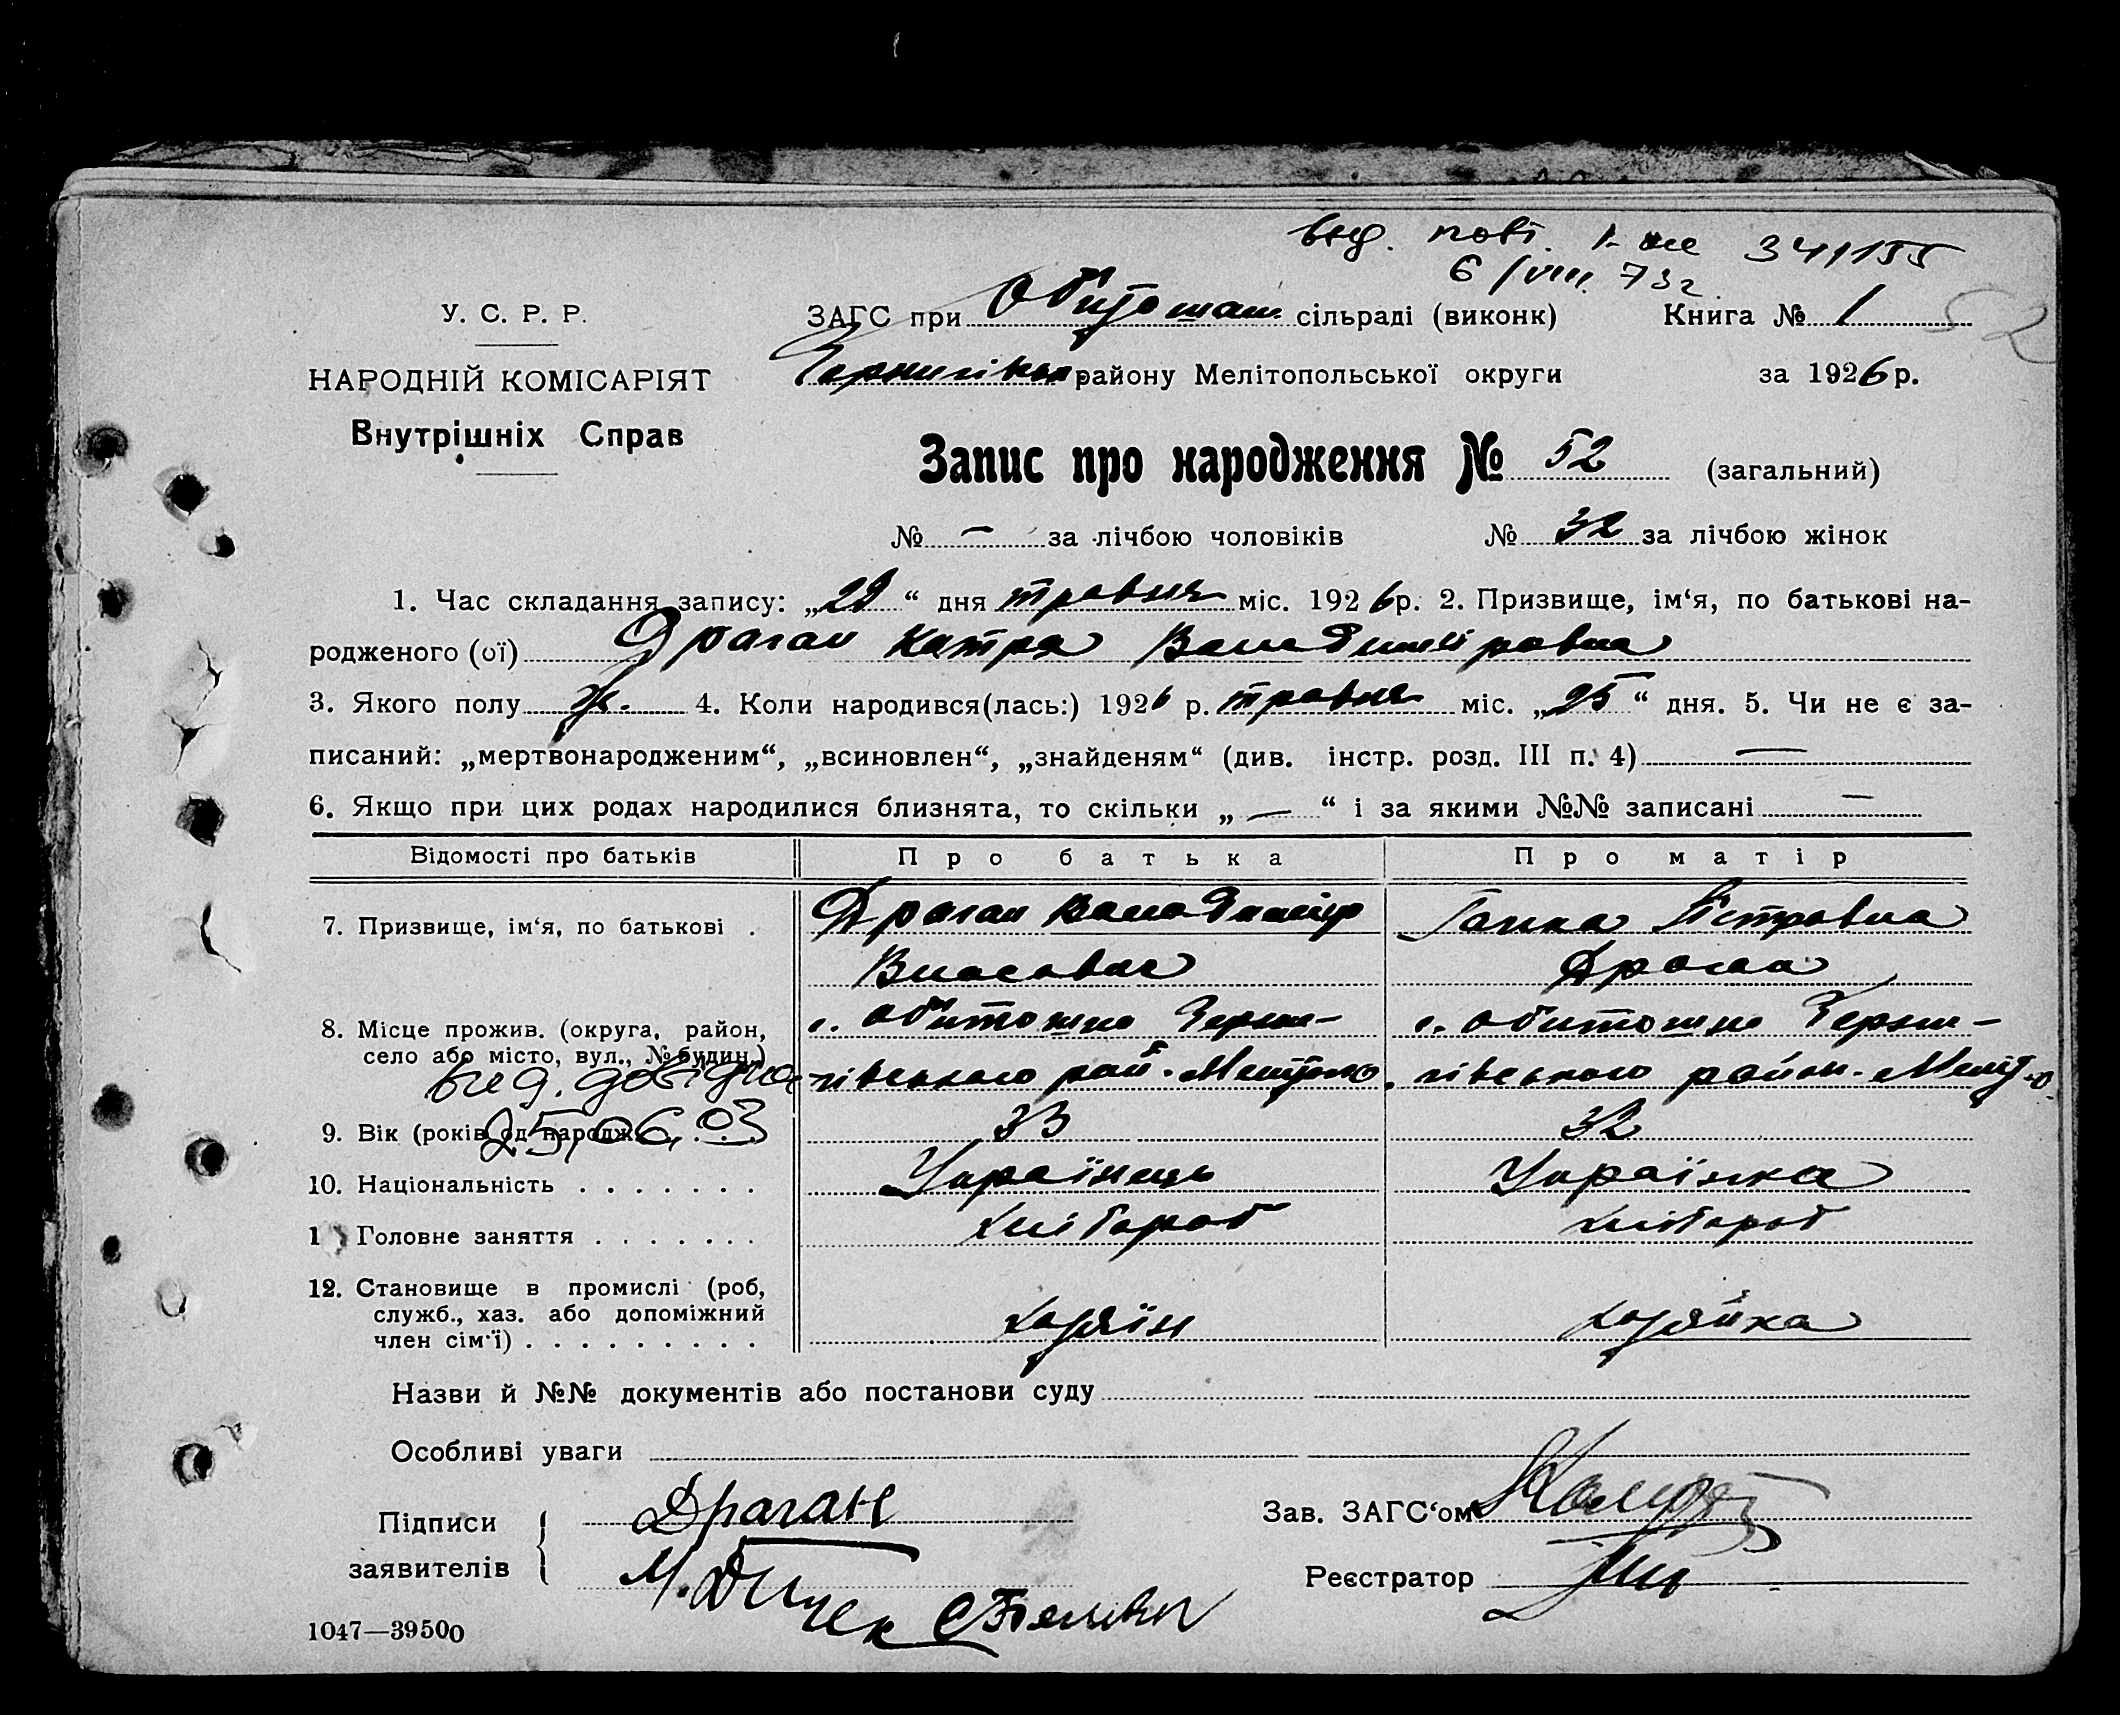 вид. повт. 341155
6/VIII. 73 г.
У. С. Р. Р.
НАРОДНІЙ КОМІСАРІЯТ
Внутрішніх Справ
ЗАГС при Обиточан. сільраді (виконк) Книга № 1 52
Чернигівськ. району Мелітопольської округи за 1926 р.
Запис про народження № 52 (загальний)
№ — за лічбою чоловіків № 32 за лічбою жінок
1. Час складання запису: „29“ дня травня міс. 1926 р. 2. Призвище, ім‘я, по батькові на-
родженого (ої) Драган Катря Володимировна
3. Якого полу ж. 4. Коли народився(лась:) 1926 р. травня міс. „25“ дня. 5. Чи не є за-
писаний: „мертвонародженим“, „всиновлен“, „знайденям“ (див. інстр. розд. III п. 4) —
6. Якщо при цих родах народилися близнята, то скільки „ — “ і за якими №№ записані —
Відомості про батьків Про батька Про матір
7. Призвище, ім‘я, по батькові . Драган Володимир Ганна Петровна
Власович Драган
8. Місце прожив. (округа, район, с. Обиточно Черни- с. Обиточно Черни-
село або місто, вул., № будин.) гівського рай. Мелітопо гівського район. Меліт-о
вид. довідка
25,06,03
9. Вік (років од народж. 33 32
10. Національність . . . . . . . Українець Українка
1 Головне заняття . . . . . . . хлібороб хлібороб
12. Становище в промислі (роб,
служб., хаз. або допоміжний
член сім‘ї) . . . . . . . . . хазяїн хазяйка
Назви й №№ документів або постанови суду
Особливі уваги
Підписи Драган Зав. ЗАГС‘ом
заявителів М. Реєстратор
1047—39500